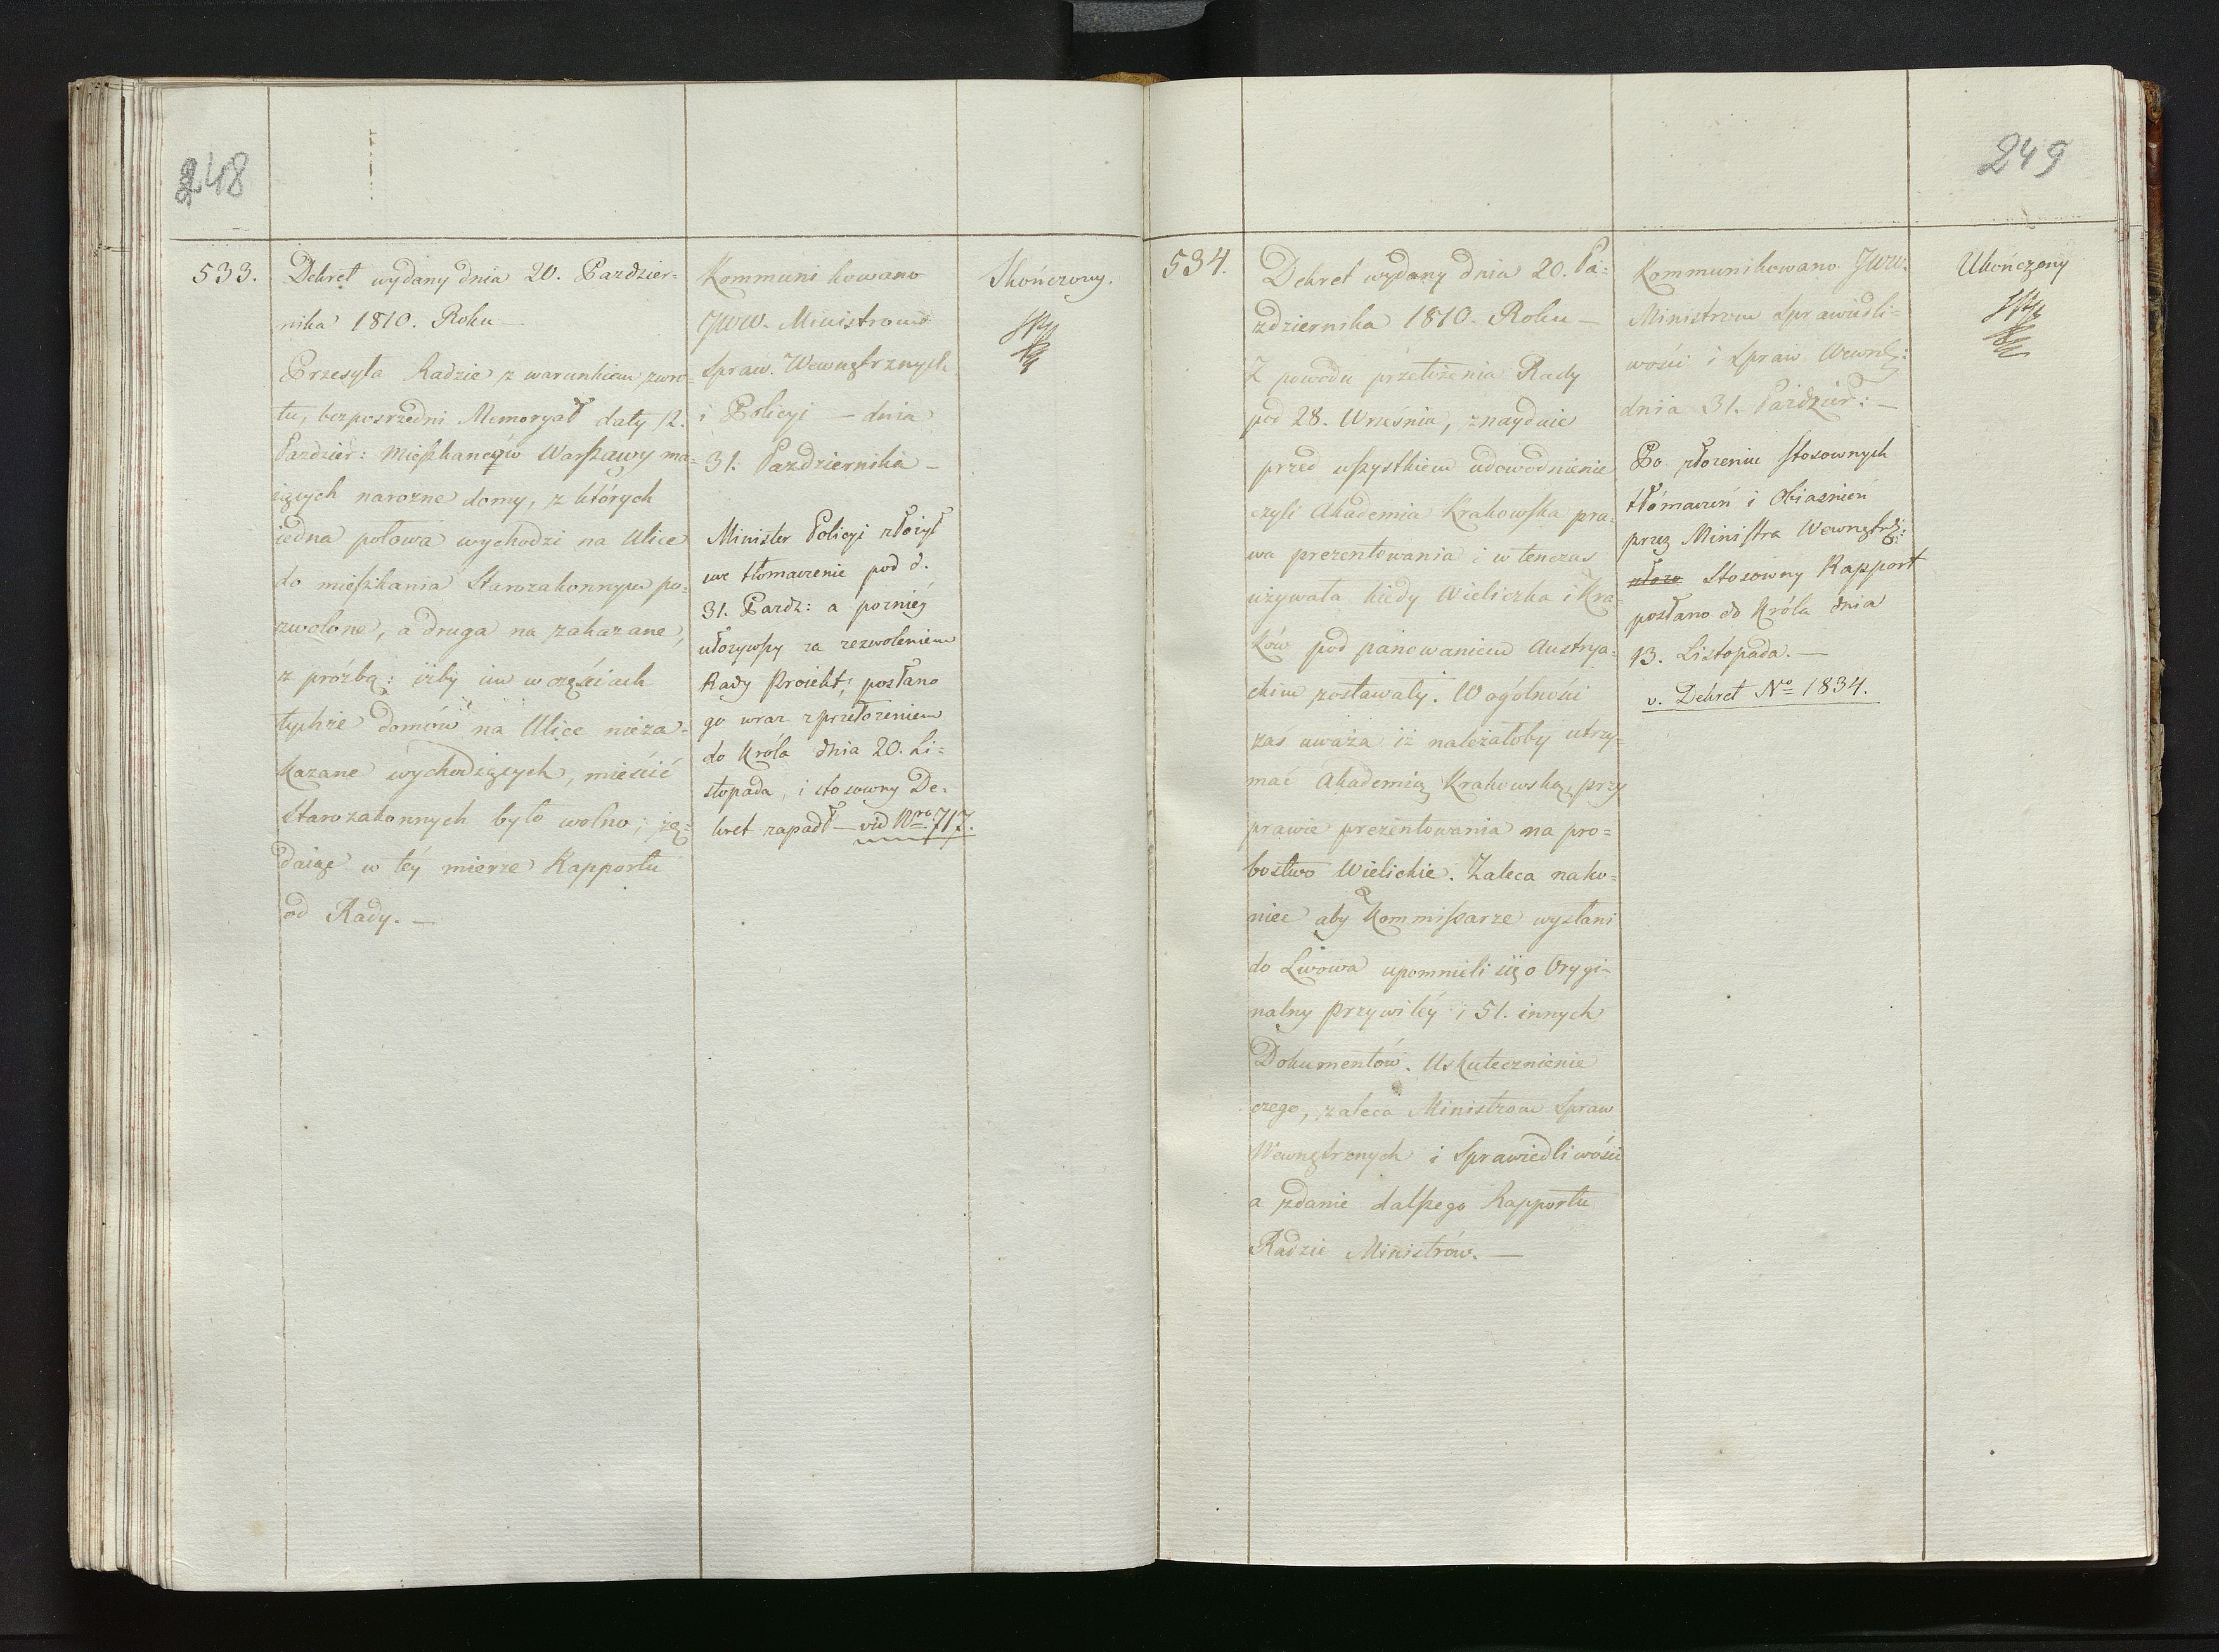 248
533.
Dekret wydany dnia 20. Pazdzier=
nika 1810. Roku —
Przesyła Radzie z warunkiem zwro=
tu, bezposrzedni Memoryał daty 12.
Pazdzier: Mieszkanców Warszawy ma=
iących narozne domy, z których
iedna połowa wychodzi na Ulice
do mieszkania Starozakonnym po=
zwolone, a druga na zakazane,
z próźbą: iżby im w częściach
tychże domów na Ulice nieza=
kazane wychodzących, mieścić
Starozakonnych było wolno; żą=
daiąc w téy mierze Rapportu
od Rady. —
Kommunikowano
JWW. Ministrom
Spraw. Wewnętrznych
i Policyi — dnia
31. Pazdziernika —
Minister Policyi złożył
swe tłomaczenie pod d.
31. Pazdz: a poźniéy
ułożywszy za zezwoleniem
Rady Proiekt, posłano
go wraz z przełożeniem
do Króla dnia 20. Li=
stopada, i stosowny De=
kret zapadł — vid Nro 717.
Skończony.
249
534.
Dekret wydany dnia 20. Pa=
zdziernika 1810. Roku —
Z powodu przełożenia Rady
pod 28. Września, znayduie
przed wszystkiem udowodnienie
czyli Akademia Krakowska pra=
wa prezentowania i w tenczas
używała kiedy Wieliczka i Kra=
ków pod panowaniem Austrya=
ckim zostawały. W ogólności
zaś uważa iż należałoby utrzy=
mać Akademią Krakowską, przy
prawie prezentowania na pro=
bostwo Wielickie. Zaleca nako=
niec aby Kommissarze wysłani
do Lwowa upomnieli się o Orygi=
nalny Przywiléy i 51. innych
Dokumentów. Uskutecznienie
czego, zaleca Ministrom Spraw
Wewnętrznych i Sprawiedliwości
a zdanie dalszego Rapportu
Radzie Ministrów. —
Kommunikowano JWW.
Ministrom Sprawiedli=
wości i Spraw Wewnę:
dnia 31. Paźdźier: —
Po złożeniu stosownych
tłómaczeń i Obiasnień
przez Ministra Wewnętrz:
Stosowny Rapport
posłano do Króla dnia
13. Listopada. —
v. Dekret No 1834.
Ukończony